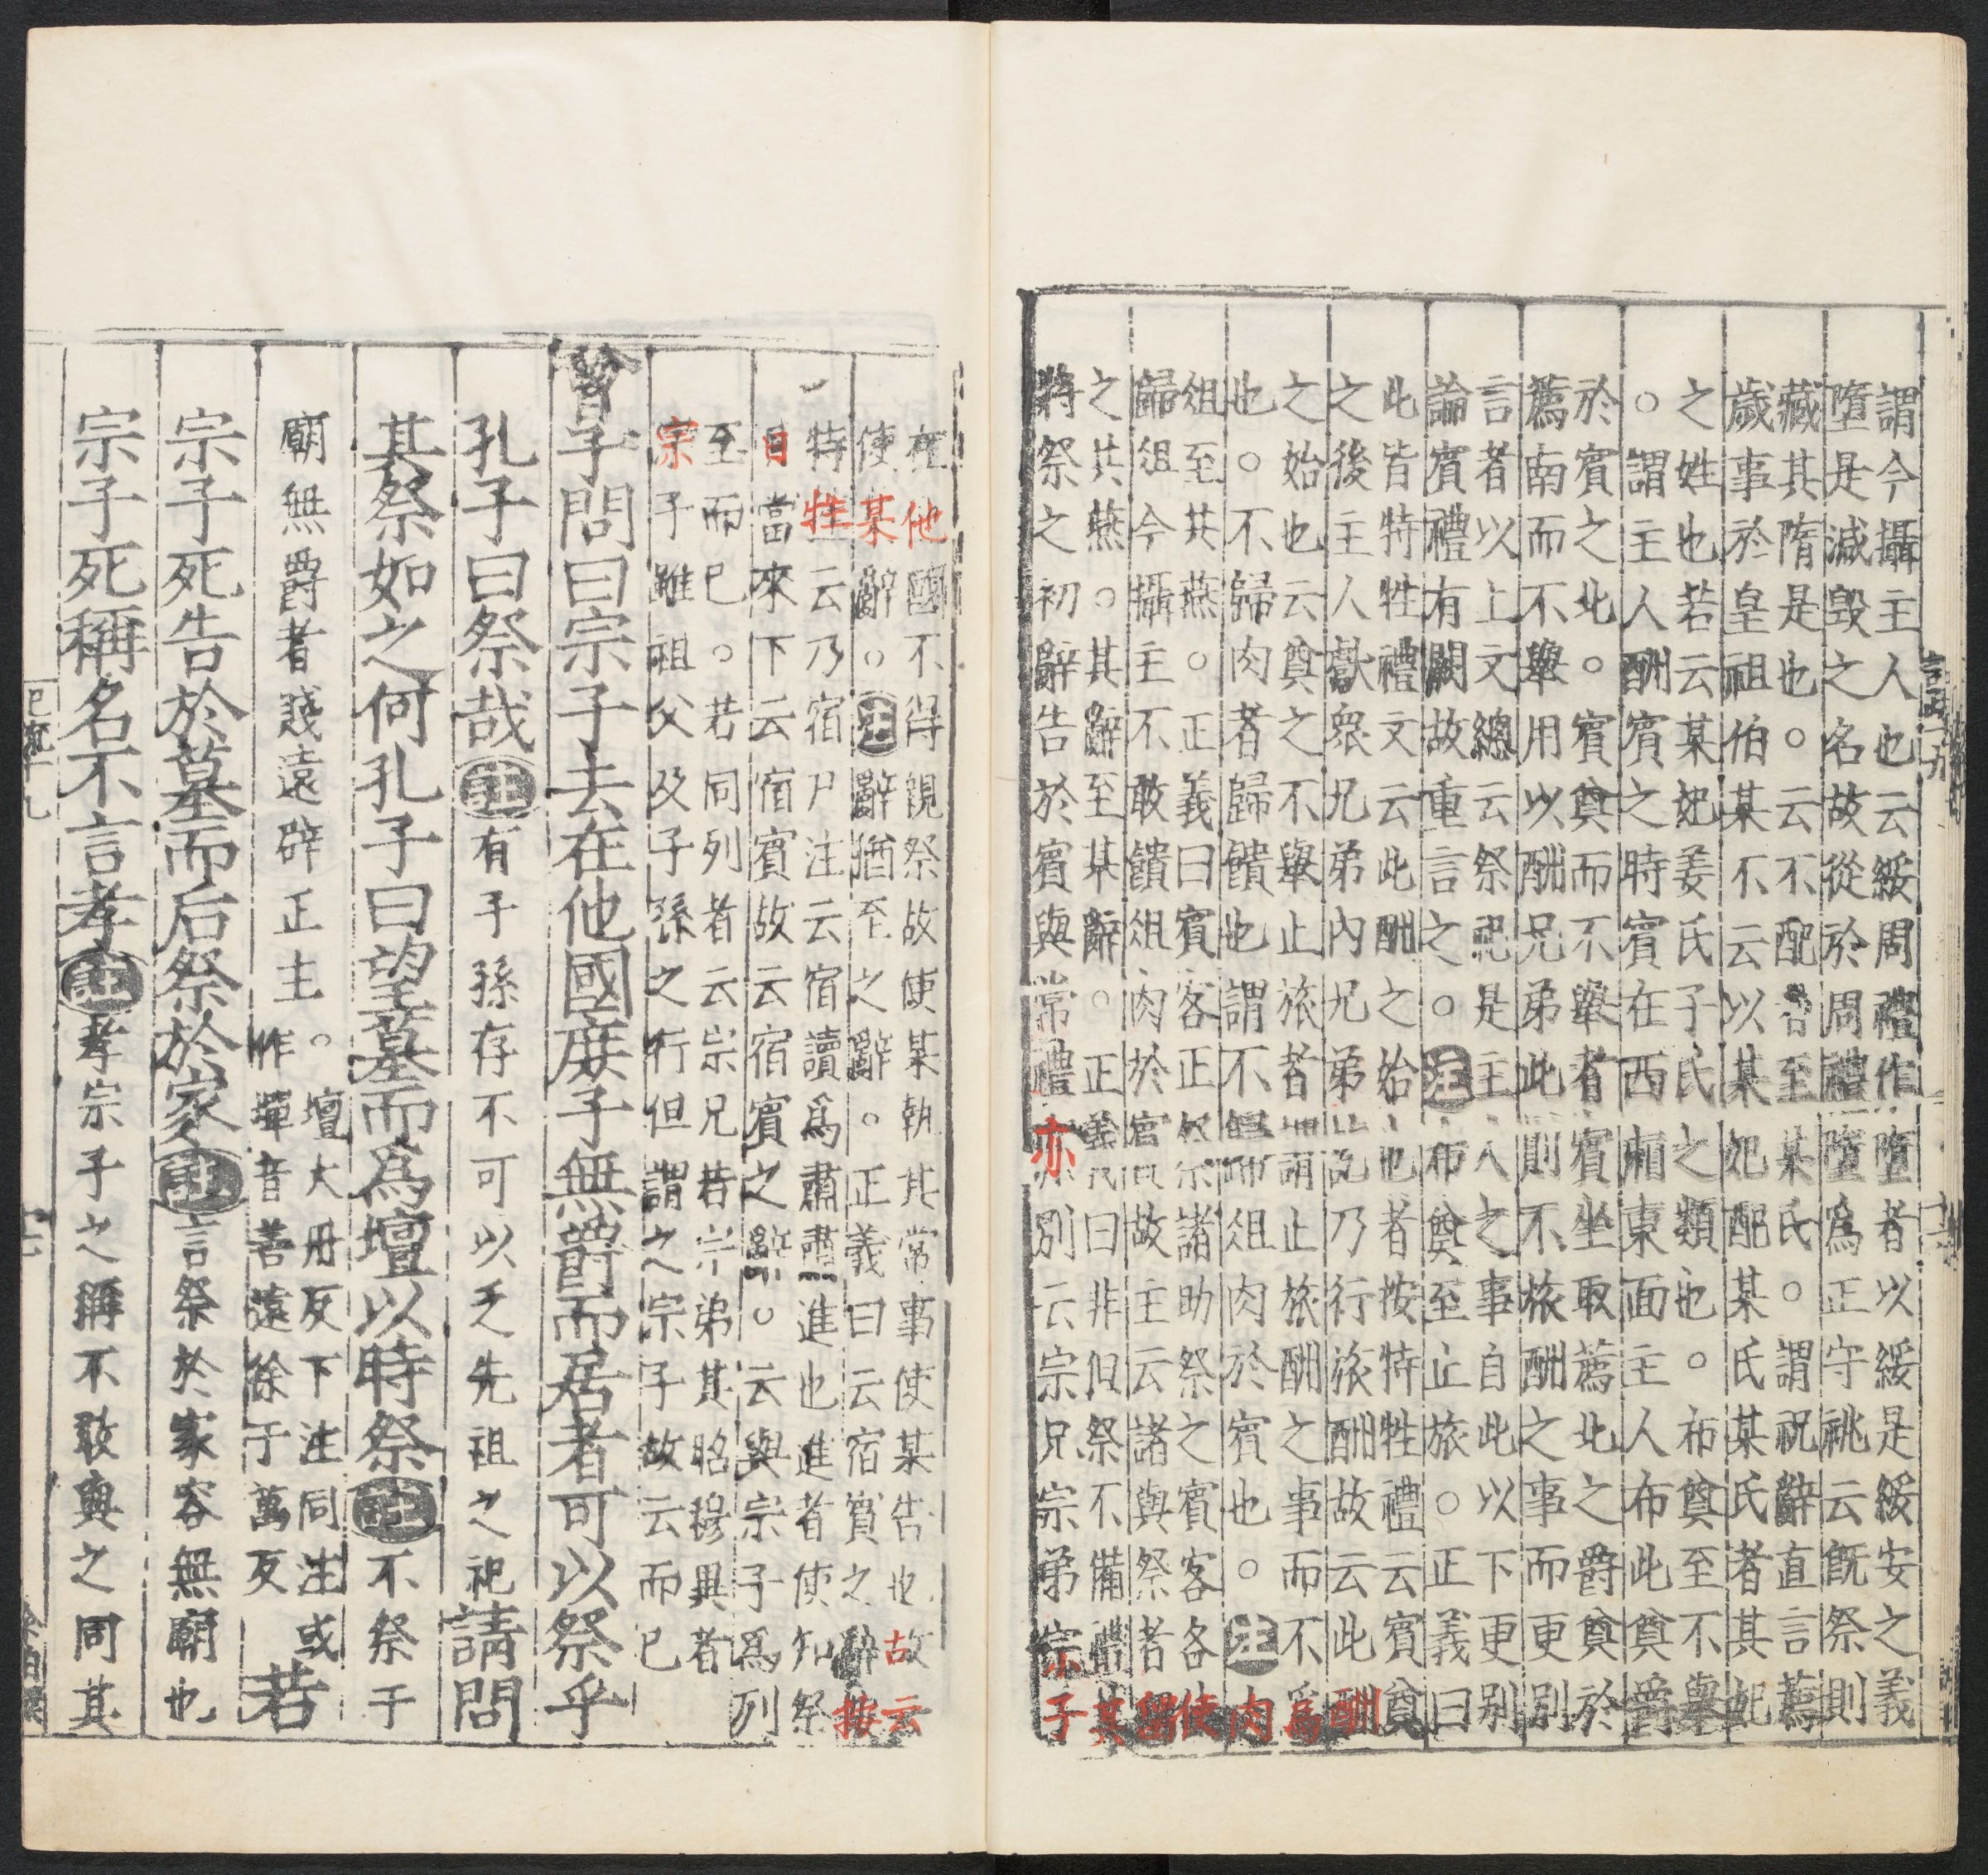 謂今攝主人也云綏周禮作墮者以綏是綏安之義
墮是減毀之名故從於周禮墮爲正守祧云旣祭則
藏其隋是也。云不配者至某氏。謂祝辭直言薦
歲事於皇祖伯某不云以某妃配某氏某氏者其妃
之姓也若云某妃姜氏子氏之類也。布奠至不舉
。謂主人酬賓之時賓在西廂東面主人布此奠爵
於賓之北。賓奠而不舉者賓坐取薦北之爵奠於
薦南而不舉用以酬兄弟此則不旅酬之事而更別
言者以上文總云祭祀是主人之事自此以下更別
論賓禮有闕故重言之。注布奠至止旅。正義曰
此皆特牲禮文云此酬之始也者按特牲禮云賓奠
之後主人獻衆兄弟內兄弟訖乃行旅酬故云此酬
之始也云奠之不舉止旅者謂止旅酬之事而不爲
也。不歸肉者歸饋也謂不歸俎肉於賓也。注肉
俎至共燕。正義曰賓客正祭諸助祭之賓客各使
歸俎今攝主不敢饋俎肉於賓故主云諸與祭者留
之共燕。其辭至某辭。正義曰非但祭不備禮其
將祭之初辭告於賓與常禮亦別云宗兄宗弟宗子
在他國不得親祭故使某執其常事使某告也故云
使某辭。注辭猶至之辭。正義曰云宿賓之辭按
特牲云乃宿尸注云宿讀爲肅肅進也進者使知祭
日當來下云宿賓故云宿賓之辭。云與宗子爲列
至而已。若同列者云宗兄若宗弟其昭穆異者
宗子雖祖父及子孫之行但謂之宗子故云而已
曾子問曰宗子去在他國庶子無爵而居者可以祭乎
孔子曰祭哉注有子孫存不可以乏先祖之祀請問
其祭如之何孔子曰望墓而爲壇以時祭注不祭于
廟無爵者賤遠辟正主。壇大丹反下注同注或
作墠音善遠徐于萬反若
宗子死告於墓而后祭於家注言祭於家容無廟也
宗子死稱名不言孝注孝宗子之稱不敢與之同其